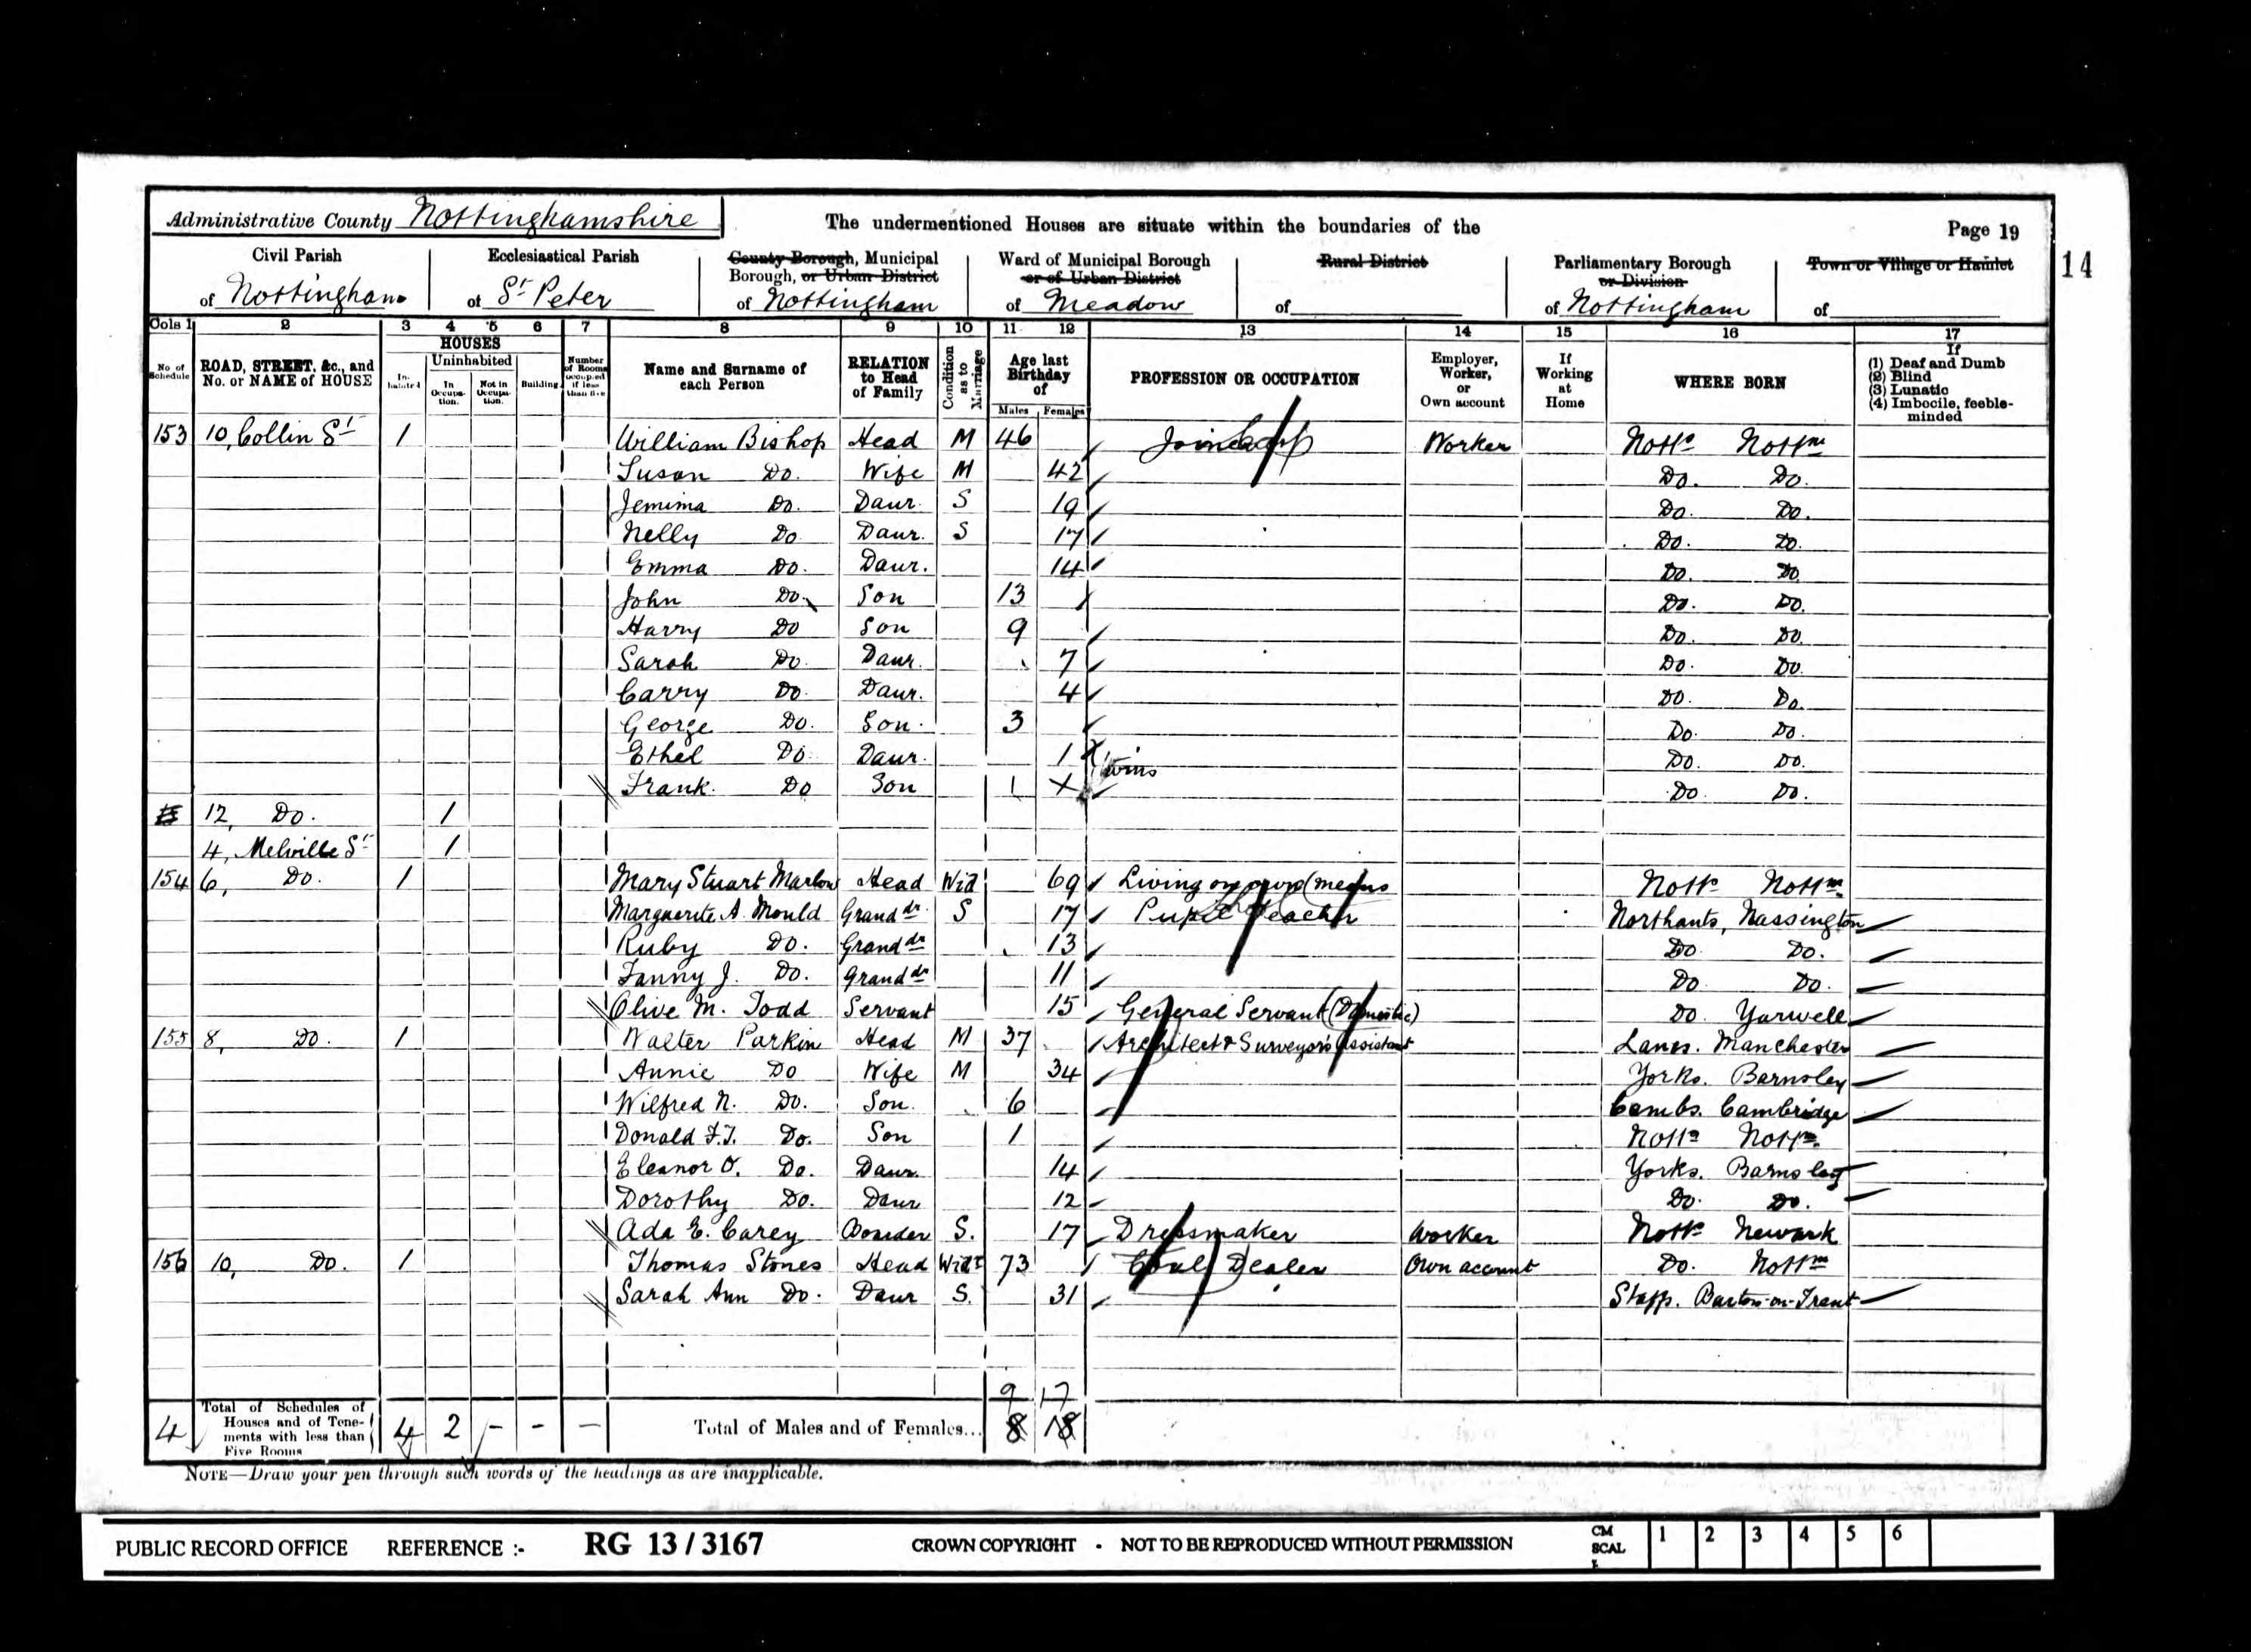 Administrative County Nottinghamshire The undermentioned Houses are situate within the boundaries of the Page 19
14
Civil Parish Ecclesiastical Parish County Borough, Municipal Borough, or Urban District Ward of Municipal Borough or of Urban District Rural District Parliamentary Borough or Division Town or Village or Hamlet
of Nottingham of St Peter of Nottingham of Meadow of of Nottingham of
Cols 1 2 3 4 5 6 7 8 9 10 11 12 13 14 15 16 17
No of Schedule ROAD, STREET, &c., and No. or NAME of HOUSE HOUSES Inhabited Uninhabited In Occupation. Not in Occupation. Building Number of Rooms occupied if less than five Name and Surname of each Person RELATION to Head of Family Condition as to Marriage Age last Birthday of Males Females PROFESSION OR OCCUPATION Employer, Worker, or Own account If Working at Home WHERE BORN If (1) Deaf and Dumb (2) Blind (3) Lunatic (4) Imbecile, feeble-minded
153 10, Collin St 1 William Bishop Head M 46 Joiner Worker Notts Nottm
Susan Do. Wife M 42 Do. Do.
Jemima Do. Daur. S 19 Do. Do.
Nelly Do Daur. S 17 Do. Do.
Emma Do. Daur. 14 Do. Do
John Do. Son 13 Do. Do.
Harry Do Son 9 Do. Do.
Sarah Do. Daur. 7 Do. Do.
Carry Do. Daur. 4 Do. Do.
George Do. Son. 3 Do. Do.
Ethel Do. Daur. 1 twins Do. Do.
Frank. Do Son 1 Do Do.
12, Do. 1
4, Melville St 1
154 6, Do. 1 Mary Stuart Marlow Head Wid 69 Living on own means Notts Nottm
Marguerite A. Mould Grand dr. S 17 Pupil Teacher Northants, Nassington
Ruby Do. Grand dr 13 Do Do.
Fanny J. Do. Grand dr 11 Do Do.
Olive M. Todd Servant 15 General Servant (Domestic) Do. Yarwell
155 8, Do. 1 Walter Parkin Head M 37 Architect & Surveyor's Assistant Lancs. Manchester
Annie Do Wife M 34 Yorks. Barnsley
Wilfred N. Do. Son. 6 Cambs. Cambridge
Donald F.T. Do. Son 1 Notts Nottm.
Eleanor O. Do. Daur. 14 Yorks. Barnsley
Dorothy Do. Daur 12 Do. Do.
Ada E. Carey Boarder S. 17 Dressmaker Worker Notts Newark
156 10, Do. 1 Thomas Stones Head Widr 73 Coal Dealer Own account Do. Nottm
Sarah Ann Do. Daur S. 31 Staff. Barton-on-Trent
9 17
4 Total of Schedules of Houses and of Tenements with less than Five Rooms 4 2 - - - Total of Males and of Females... 8 18
NOTE—Draw your pen through such words of the headings as are inapplicable.
PUBLIC RECORD OFFICE REFERENCE :- RG 13 / 3167 CROWN COPYRIGHT - NOT TO BE REPRODUCED WITHOUT PERMISSION CM SCAL 1 2 3 4 5 6